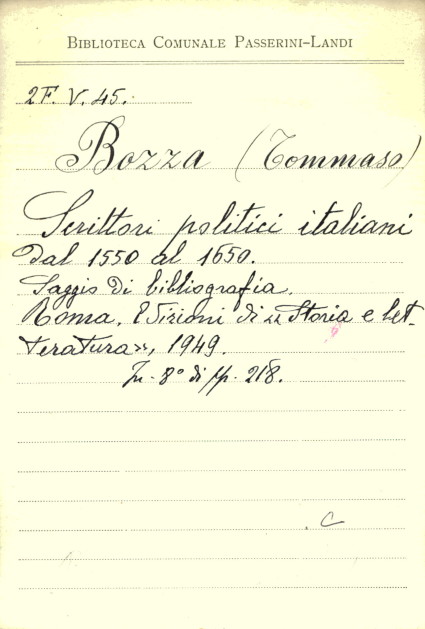 BIBLIOTECA COMUNALE PASSERINI-LANDI
2F. V. 45.
Bozza (Tommaso)
Scrittori politici italiani
dal 1550 al 1650.
Saggio di bibliografia.
Roma, Edizioni di «Storia e Let-
teratura», 1949.
In-8° di pp. 218.
C